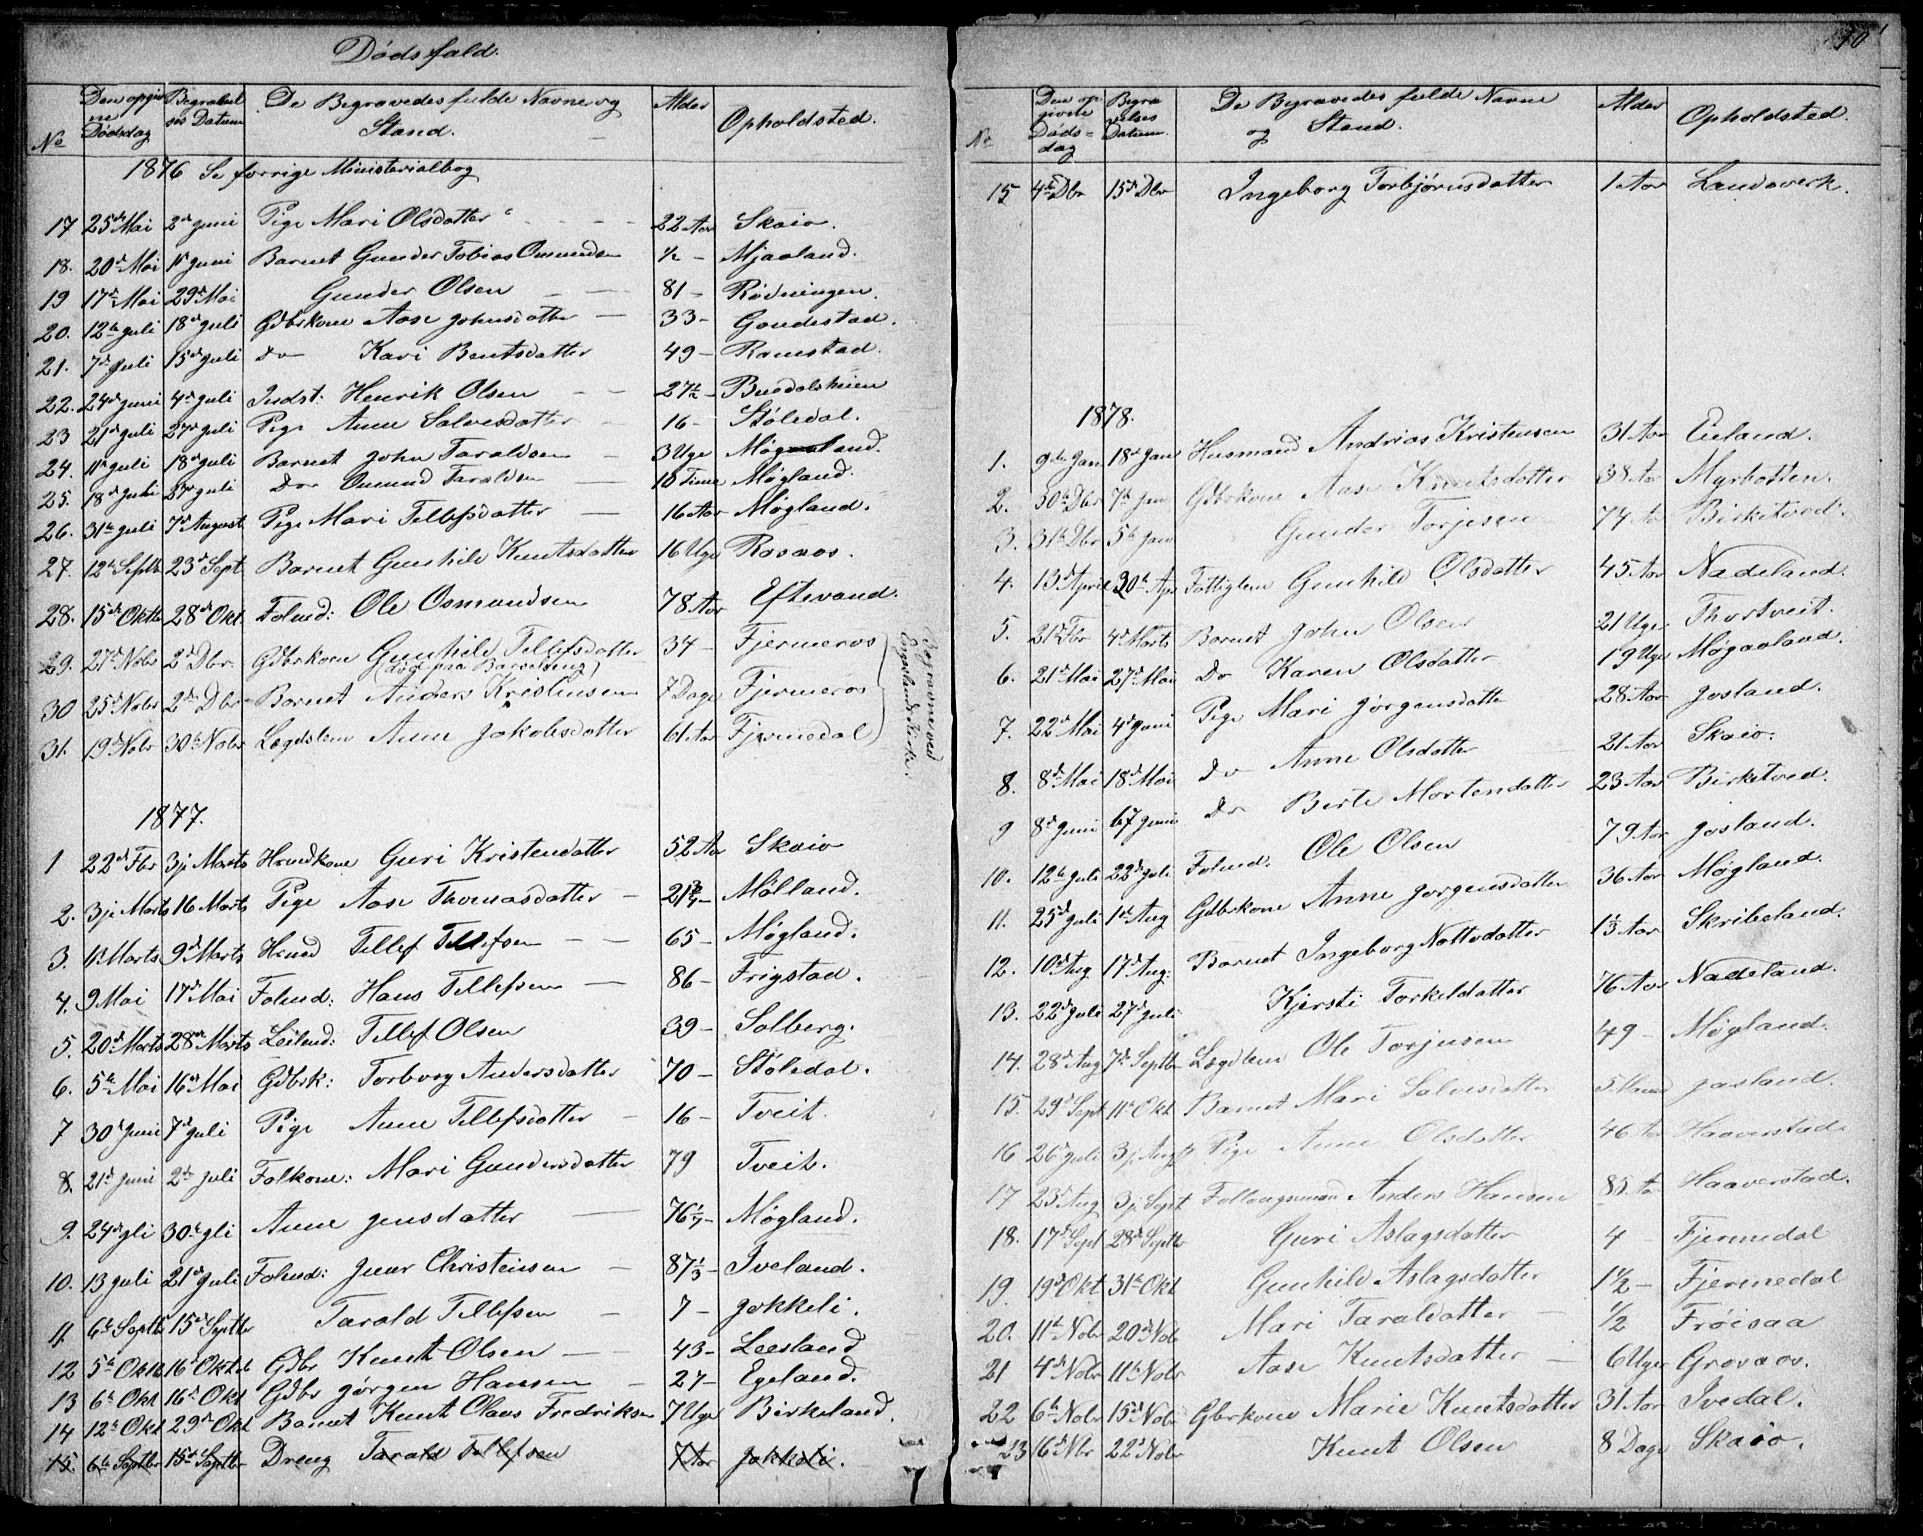 Dødsfald.
No Den opgivne Dødsdag Begravelses Datum De Begravedes fulde Navne og Stand. Alder Opholdsted.
1876 Se forrige Ministerialbog
17 25de Mai 2den Juni Pige Mari Olsdatter 22 Aar Skaiø.
18. 20de Mai 11te Juni Barnet Gunder Tobias Omundsen ½ - Mjaaland.
19 17de Mai 29de Mai Gunder Olsen 81 - Rødningen.
20. 12te Juli 18de Juli Gdbrkone Aase Johnsdatter 33 - Gaudestad.
21. 7de Juli 15de Juli Do Kari Bentsdatter 49 - Ramstad.
22. 24de Juni 4de Juli Indst: Henrik Olsen 27½ - Buodalsheien
23 21de Juli 27de Juli Pige Anne Salvesdatter 16 - Støledal.
24. 11te Juli 18de Juli Barnet John Taraldsen 3 Uge Møgland.
25. 18de Juli 27de Juli Do Omund Taraldsen 10 Time Møgland.
26. 31te Juli 7de August Pige Mari Tellefsdatter 16 Aar Møgland.
27. 12te Septbr 23de Sept Barnet Gunhild Knutsdatter 16 Uge Rosaas.
28. 15de Oktbr 28de Okt. Folmd: Ole Osmundsen 78 Aar Eftevand.
29. 27de Nobr 2den Dbr. Gdbrkoen Gunhild Tellefsdatter 34 - Fjermeros
(død paa Barselseng)
30 25de Nobr 2den Dbr Barnet Anders Kristensen 7 Dage Fjermeros
31. 19de Nobr 30te Nobr Lægdslem Anne Jakobsdatter 61 Aar Fjermedal
Begravne ved Engeslands Kirke.
1877.
1 22de Fbr 3je Marts Huusdkone Guri Kristendatter 52 Aar Skaiø
2. 3je Marts 16 Marts Pige Aase Thomasdatter 21 - Mølland.
3. 1te Marts 9de Marts Husmd Tellef Tellefsen 65 - Møgland.
4. 9 Mai 17de Mai Folmd: Hans Tellefsen 86 - Frigstad.
5. 20de Marts 28de Marts Leilmd: Tellef Olsen 39 - Solberg.
6. 5te Mai 16de Mai Gdbrk: Torborg Andersdatter 70 - Støledal.
7 30te Juni 7de Juli Pige Anne Tellefsdatter 16 - Tveit.
8. 21de Juni 2den Juli Folkone: Mari Gundersdatter 79 Tveit.
9. 24de Jli 30te Jli Anne Jensdatter 76 - Møgland.
10. 13 Juli 21de Juli Folmd: Junar Christensen 87 - Iveland.
11. 6te Septbr 15de Septbr Tarald Tellefsen 7 - Jokkeli.
12 5te Oktb 16de Oktob Gdbr Knut Olsen 43 - Leesland
13 6te Okt 16de Okt Gdbr Jørgen Hansen 27 - Egeland.
14 12te Okt 29de Okt Barnet Knut Claus Fredriksen 7 Uge Birkeland.
15. 6te Septbr 15de Septbr Dreng Tarald Tellefsen 7 Aar Jokkeli.
70
No Den opgivne Dødsdag Begravelses Datum. De Begravedes fulde Navne og Stand. Alder Opholdsted.
15 4de Dbr 15de Dbr Ingeborg Torbjørnsdatter 1 Aar Landaverk.
1878.
1. 9de Jan 18de Jan Husmand Andrias Kristensen 31 Aar Eieland.
2. 30te Dbr 7de Jan Gdbrkone Aase Knutsdatter 38 Aar Myrbotten.
3. 31te Dbr 5te Jan Gunder Torjesen 74 Aar Birketved.
4. 13de April 30te Apr Fattiglem Gunhild Olsdatter 45 Aar Nadeland.
5. 21de Fbr 4de Marts Barnet John Olsen 21 Uge Thortveit.
6. 21de Mai 27de Mai Do Karen Olsdatter 19 Uge Møgaaland.
7. 22de Mai 4de Juni Pige Mari Jørgensdatter 28 Aar Josland.
8. 8de Mai 18de Mai Do Anne Olsdatter 21 Aar Skaiø.
9 8de Juni 17 Juni Do Berte Mortensdatter 23 Aar Birketved.
10. 12te Juli 22de Juli Folmd. Ole Olsen 79 Aar Josland.
11. 25de Juli 1te Aug Gdbrkone Anne Jørgensdatter 36 Aar Møgland.
12. 10de Aug 17de Aug. Barnet Ingeborg Nottodatter 1½ Aar Skribeland.
13. 22de Juli 27de Juli Kjersti Torkeldatter 76 Aar Nadeland.
14. 28de Aug 7de Septbr Lægdlem Ole Torjusen 49 - Møgland.
15. 29de Sept 11te Okt Barnet Mari Salvesdatter 5 Maand Josland.
16 26de Juli 3je Aug Pige Anne Olsdatter 46 Aar Haaverstad.
17 23de Aug 3je Sept Follougsmand Anders Hansen 85 Aar Haaverstad.
18. 17de Sept 28de Septbr Guri Aslagsdatter 4 - Fjermedal
19 19de Okt 31te Okt Gunhild Aslagsdatter 1½ - Fjermedal
20. 11te Nobr 20de Nobr Mari Taraldatter - ½ Frøisaa
21 4de Nobr 11te Nobr Aase Knutsdatter - 6 Uger Grosaas.
22 6te Nobr 15de Nobr Gbrkone Marie Knutsdatter 31 Aar Ivedal.
23 16de Nbr 22de Nobr Knut Olsen 8 Dage Skaiø.